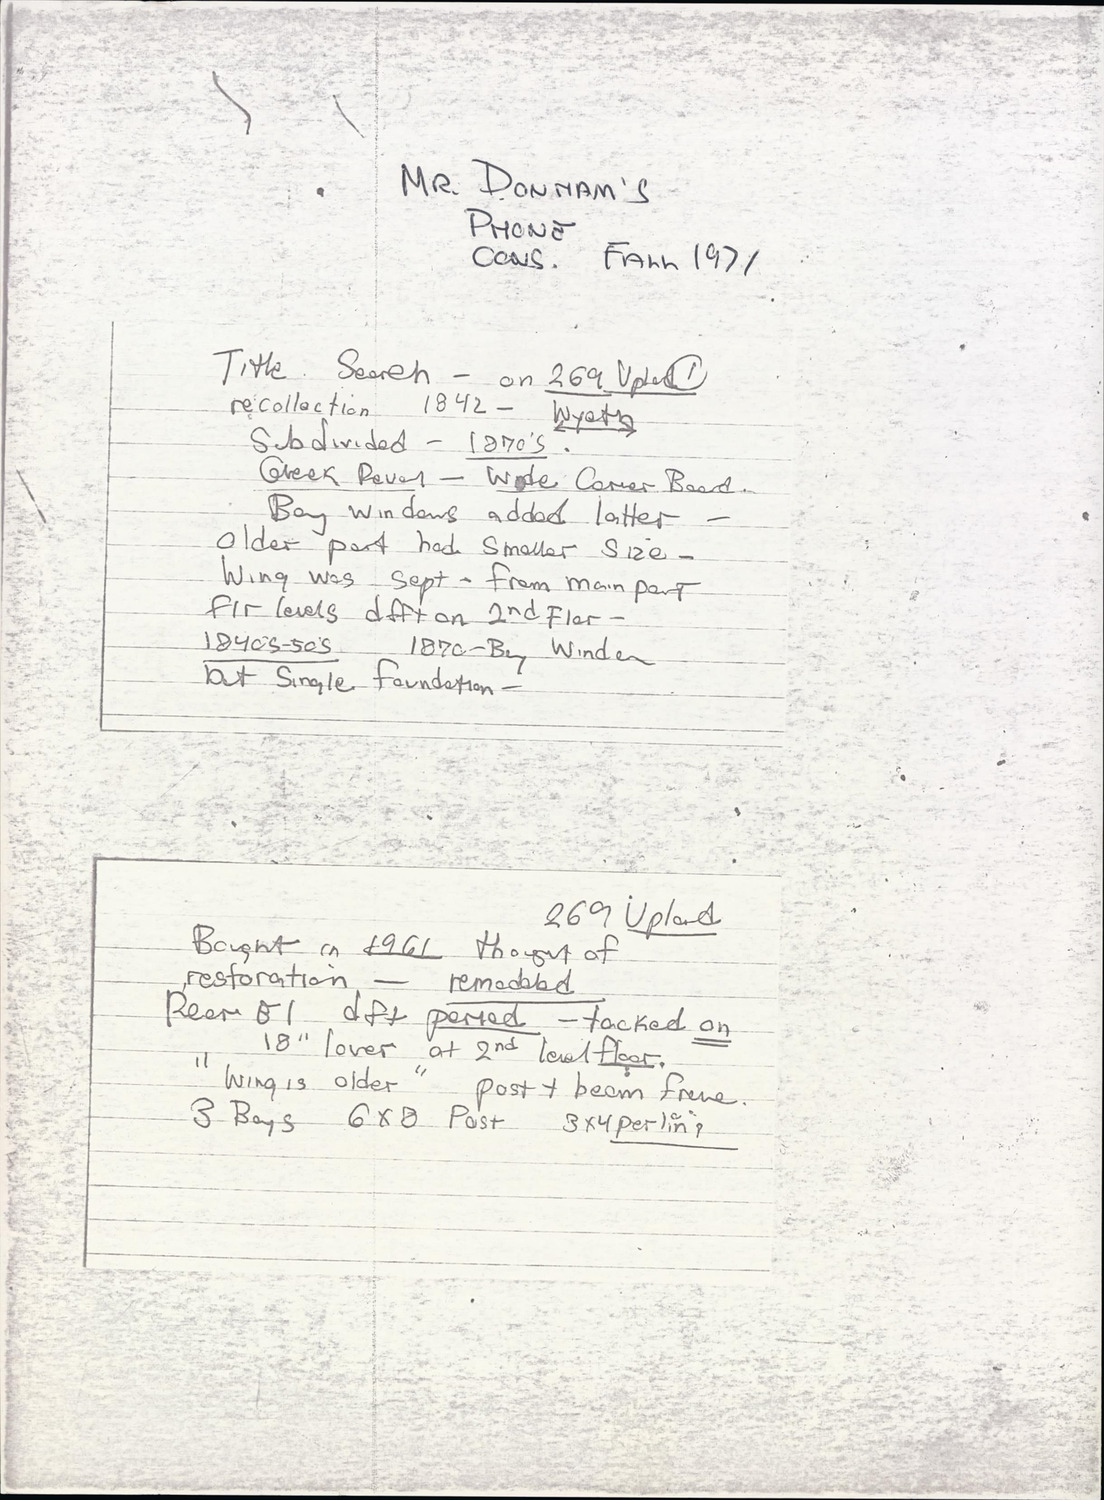 MR. DONHAM'S
PHONE
CONS. FALL 1971
Title Search - on 269 Upland ①
recollection 1842 - Wyeth
Subdivided - 1870's.
Greek Reval - Wide Corner Board.
Bay windows added latter -
older part had smaller size -
Wing was sept - from main part
flr levels dfft on 2nd Flor -
1840's-50's 1870-Bay Window
but Single foundation -
269 Upland
Bought in 1961 thought of
restoration - remodeled
Rear El dft period - tacked on
18" lover at 2nd level floor.
"Wing is older" post + beam frame.
3 Bays 6x8 Post 3x4 perlin?